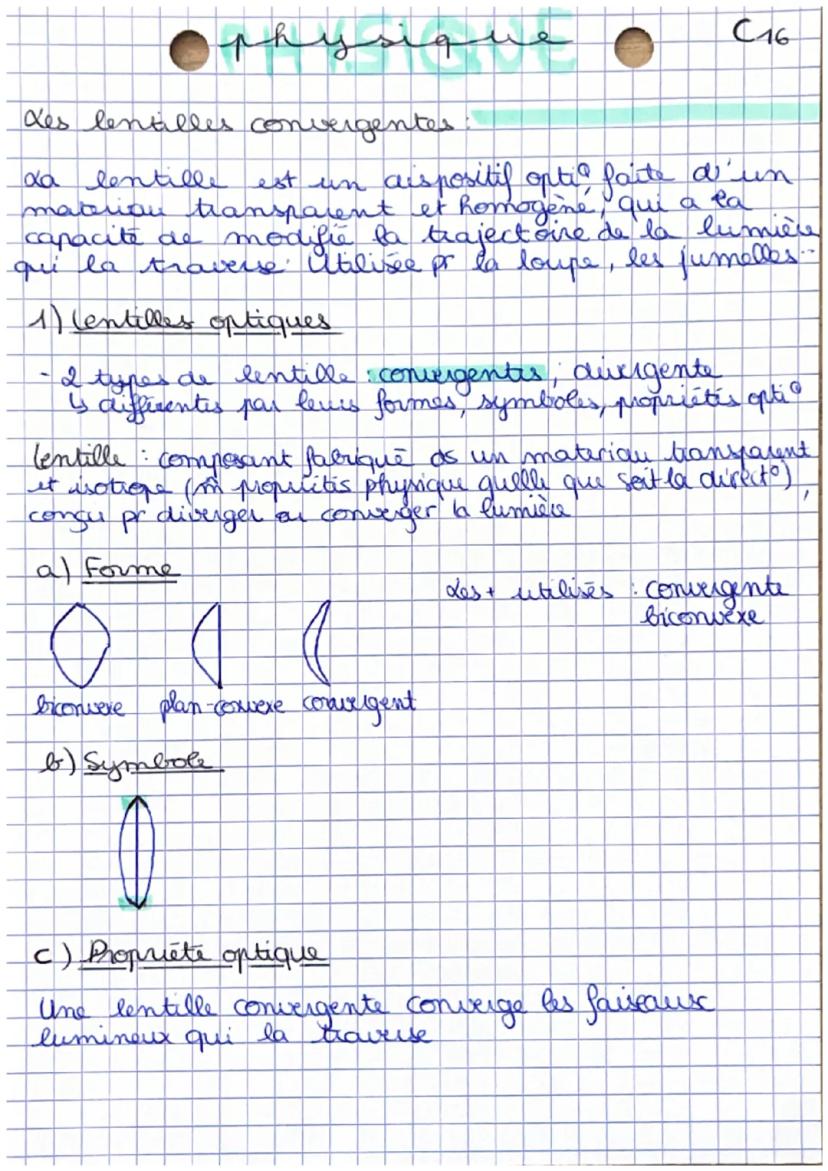 physique
C16
Les lentilles convergentes :
La lentille est un dispositif opti°, faite d'un
materiau transparent et homogène, qui a la
capacité de modifié la trajectoire de la lumière
qui la traverse. Utilisée pr la loupe, les jumelles...
1) Lentilles optiques
- 2 types de lentille : convergentes ; divergente
↳ différentes par leurs formes, symboles, propriétés opti°
Lentille : composant fabriqué ds un materiau transparent
et isotrope (m̂ propriétés physique quelle que soit la direct°),
conçu pr diverger ou converger la lumière
a) Forme
Les + utilisés : convergente
biconvexe
biconvexe plan-convexe convergent
b) Symbole
c) Propriété optique
Une lentille convergente converge les faiseaux
lumineux qui la traverse